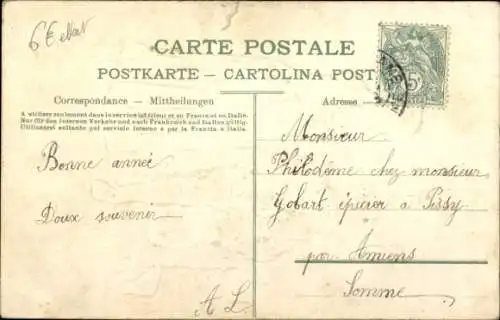 6€ ebat
CARTE POSTALE
POSTKARTE - CARTOLINA POST
Correspondance - Mittheilungen
Adresse
A utiliser seulement dans le service intérieur et en France et en Italie.
Nur für den internen Verkehr und nach Frankreich und Italien gültig.
Utilizzarsi soltanto pel servizio interno e per la Francia e l'Italia.
Bonne année
Doux souvenir
A L
Monsieur
Philodème chez monsieur
Gobart épicier à Pissy
par Amiens
Somme
5